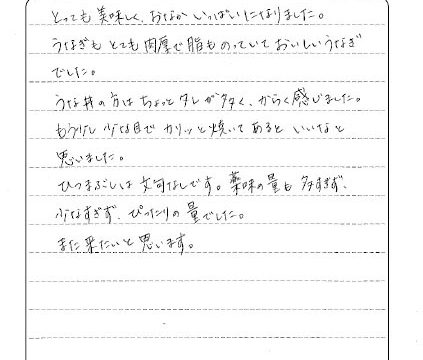 とっても美味しく、おなかいっぱいになりました。
うなぎもとても肉厚で脂ものっていておいしいうなぎ
でした。
うな丼の方はちょっとタレが多く、からく感じました。
もう少し少な目でカリッと焼いてあるといいなと
思いました。
ひつまぶしは文句なしです。薬味の量も多すぎず、
少なすぎず、ぴったりの量でした。
また来たいと思います。